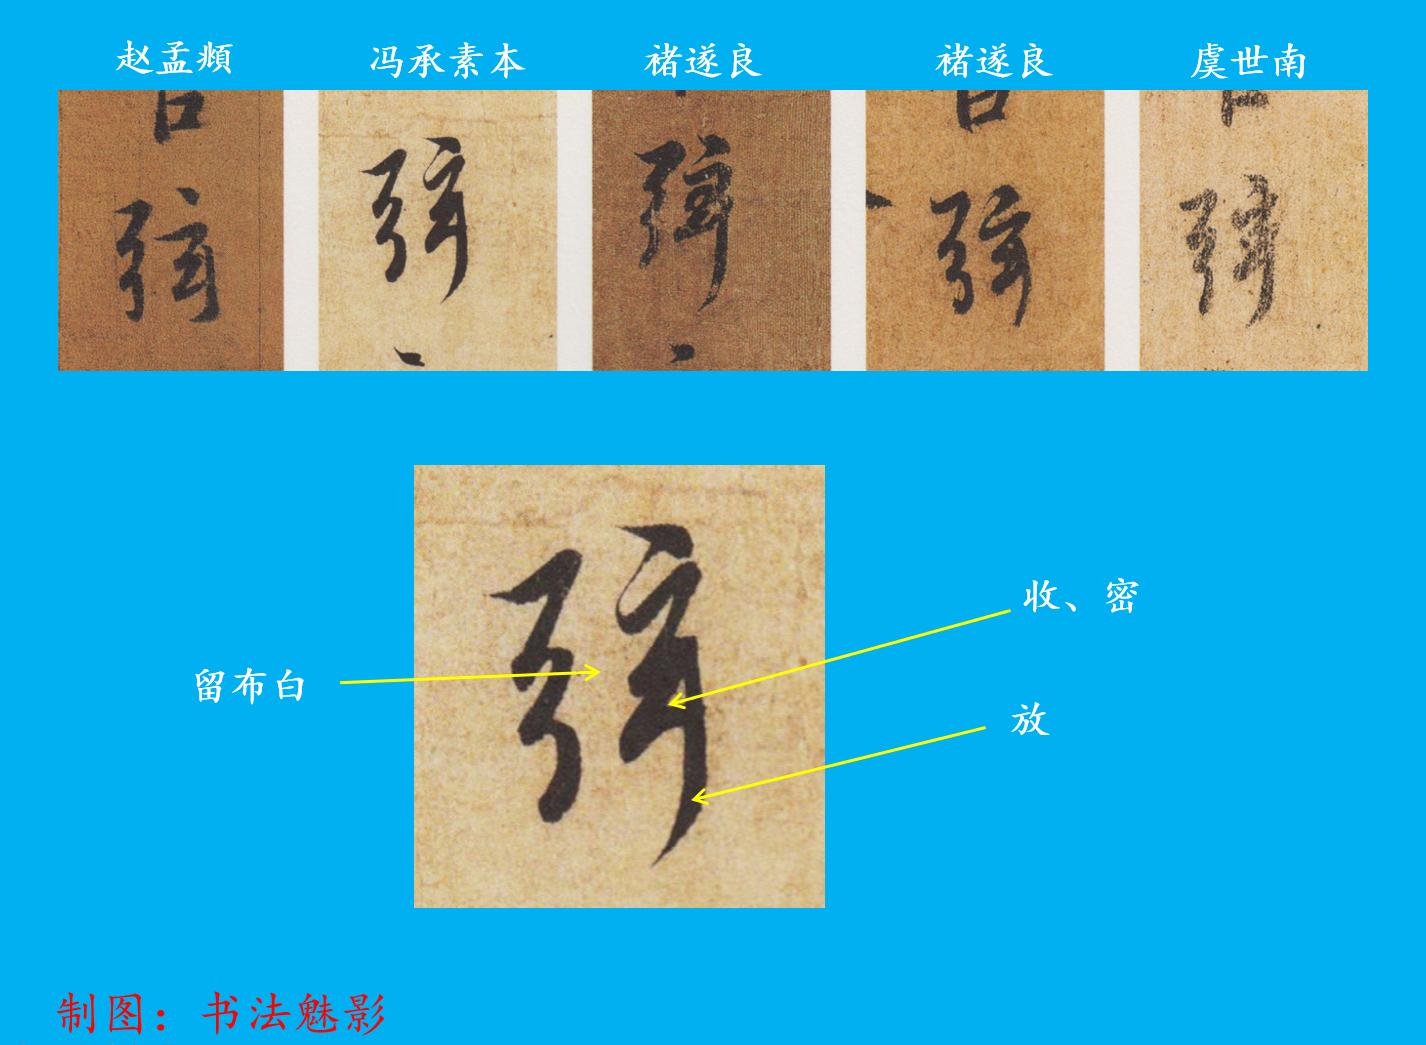 赵孟頫
冯承素本
褚遂良
褚遂良
虞世南
弦
弦
弦
弦
弦
弦
收、密
留布白
放
制图：书法魅影